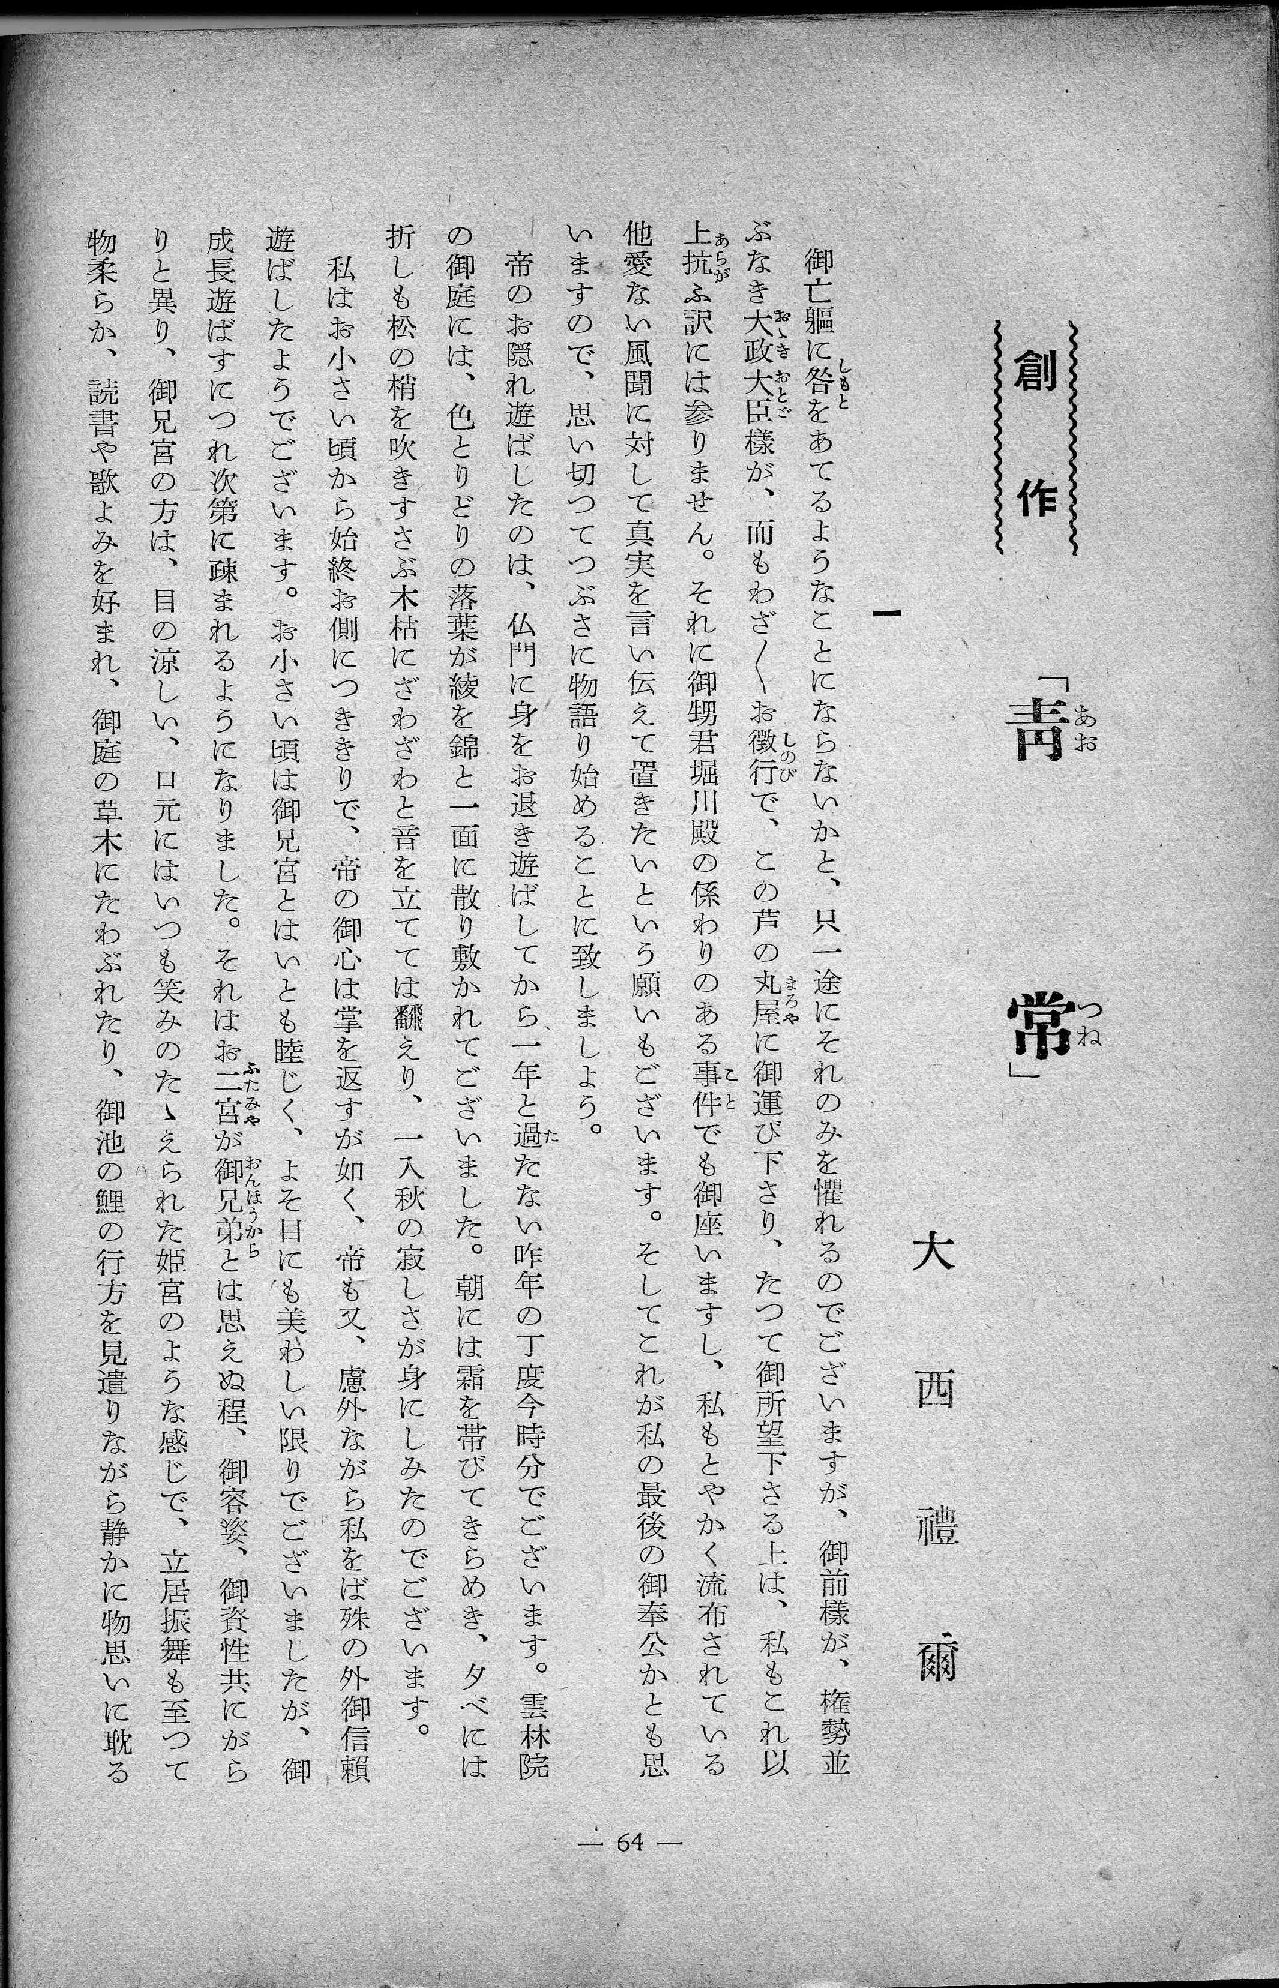 創作
「青常」
あお つね
大西禮爾
一
御亡軀に咎をあてるようなことにならないかと、只一途にそれのみを懼れるのでございますが、御前様が、権勢並
しもと
ぶなき大政大臣様が、而もわざ〳〵お微行で、この芦の丸屋に御運び下さり、たつて御所望下さる上は、私もこれ以
おゝき おとゞ しのび まろや
上抗ふ訳には参りません。それに御甥君堀川殿の係わりのある事件でも御座いますし、私もとやかく流布されている
あらが こと
他愛ない風聞に対して真実を言い伝えて置きたいという願いもございます。そしてこれが私の最後の御奉公かとも思
いますので、思い切つてつぶさに物語り始めることに致しましよう。
帝のお隠れ遊ばしたのは、仏門に身をお退き遊ばしてから一年と過たない昨年の丁度今時分でございます。雲林院
た
の御庭には、色とりどりの落葉が綾を錦と一面に散り敷かれてございました。朝には霜を帯びてきらめき、夕べには
折しも松の梢を吹きすさぶ木枯にざわざわと音を立てては飜えり、一入秋の寂しさが身にしみたのでございます。
私はお小さい頃から始終お側につききりで、帝の御心は掌を返すが如く、帝も又、慮外ながら私をば殊の外御信頼
遊ばしたようでございます。お小さい頃は御兄宮とはいとも睦じく、よそ目にも美わしい限りでございましたが、御
成長遊ばすにつれ次第に疎まれるようになりました。それはお二宮が御兄弟とは思えぬ程、御容姿、御資性共にがら
ふたみや おんはうから
りと異り、御兄宮の方は、目の涼しい、口元にはいつも笑みのたゝえられた姫宮のような感じで、立居振舞も至つて
物柔らか、読書や歌よみを好まれ、御庭の草木にたわぶれたり、御池の鯉の行方を見遣りながら静かに物思いに耽る
— 64 —